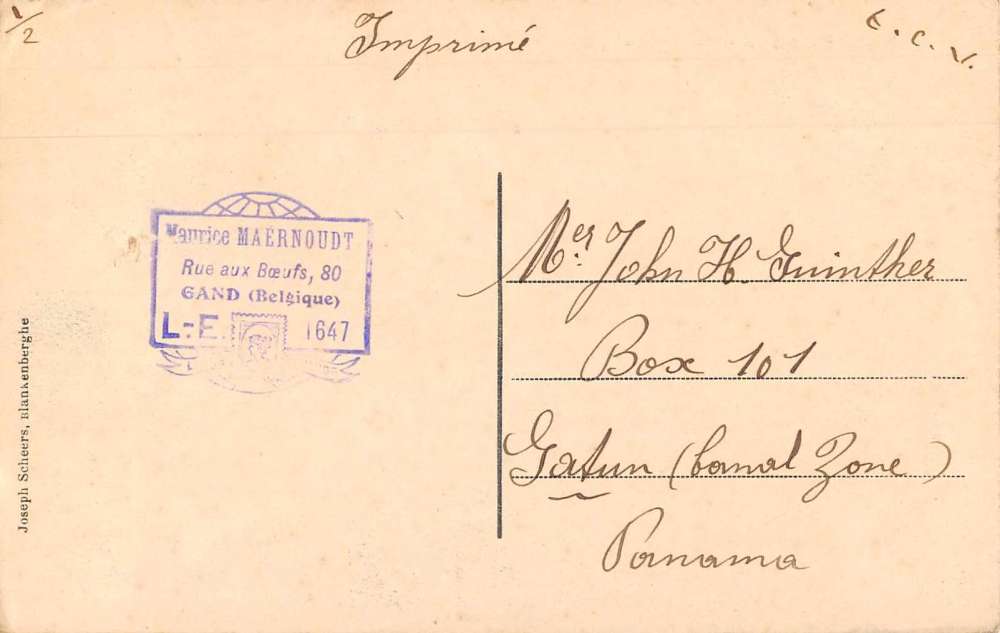 1/2
Imprimé
T. C. V.
Maurice MAERNOUDT
Rue aux Bœufs, 80
GAND (Belgique)
L.-E. 1647
Joseph Scheers, Blankenberghe
Mer. John H. Guinther
Box 101
Gatun (Canal Zone)
Panama